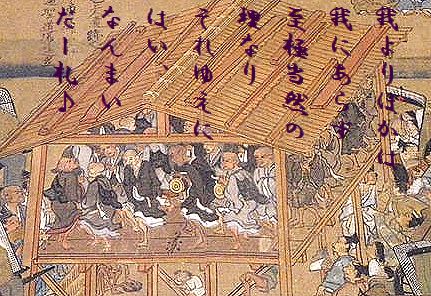 我よりほかは
我にあらず
至極当然の
理なり
それゆえに
はい、
なんまい
だー札♪